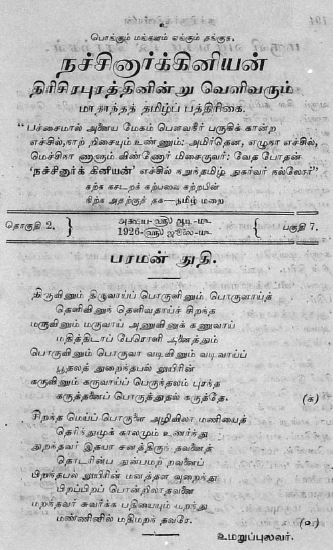 உ
பொங்கும் மங்களம் எங்கும் தங்குக.
நச்சினார்க்கினியன்
திரிசிரபுரத்தினின்று வெளிவரும்
மாதாந்தத் தமிழ்ப் பத்திரிகை.
"பச்சைமால் அனைய மேகம் பௌவநீர் பருகிக் கான்ற
எச்சில், நாற் றிசையும் உண்ணும்; அமிர்தென, எழுநா எச்சில்,
மெச்சிநா ணாளும் விண்ணோர் மிசைகுவர்; வேத போதன்
'நச்சினார்க் கினியன்' எச்சில் நறுந்தமிழ் நுகர்வர் நல்லோர்"
கற்க கசடறக் கற்பவை கற்றபின்
நிற்க அதற்குத் தக—தமிழ் மறை
தொகுதி 2. } அக்ஷய-௵ ஆடி-௴ { பகுதி 7.
1926-௵ ஜூலை-௴
பரமன் துதி.
திருவினும் திருவாய்ப் பொருளினும் பொருளாய்த்
தெளிவினுந் தெளிவதாய்ச் சிறந்த
மருவினும் மருவாய் அணுவினுக் கணுவாய்
மதித்திடாப் பேரொளி யனைத்தும்
பொருவினும் பொருவா வடிவினும் வடிவாய்ப்
பூதலத் துறைந்தபல் லுயிரின்
கருவினும் கருவாய்ப் பெருந்தலம் புரந்த
கருத்தனைப் பொருத்துதல் கருத்தே. (க)
சிறந்த மெய்ப் பொருளை அழிவிலா மணியைத்
தெரிந்துமுக் காலமும் உணர்ந்து
துறந்தவர் இதயா சனத்திருந் தவனைத்
தொடரின்ப துன்பமற் றவனைப்
பிறந்தபல் லுயிரின் மனத்தள வறிந்து
பிறப்பிறப் பொன்றிலாதவனை
மறந்தவர் சுவர்க்க பதியையும் மறந்து
மண்ணினில் மதிமறந் தவரே. (உ)
உமறுப்புலவர்.